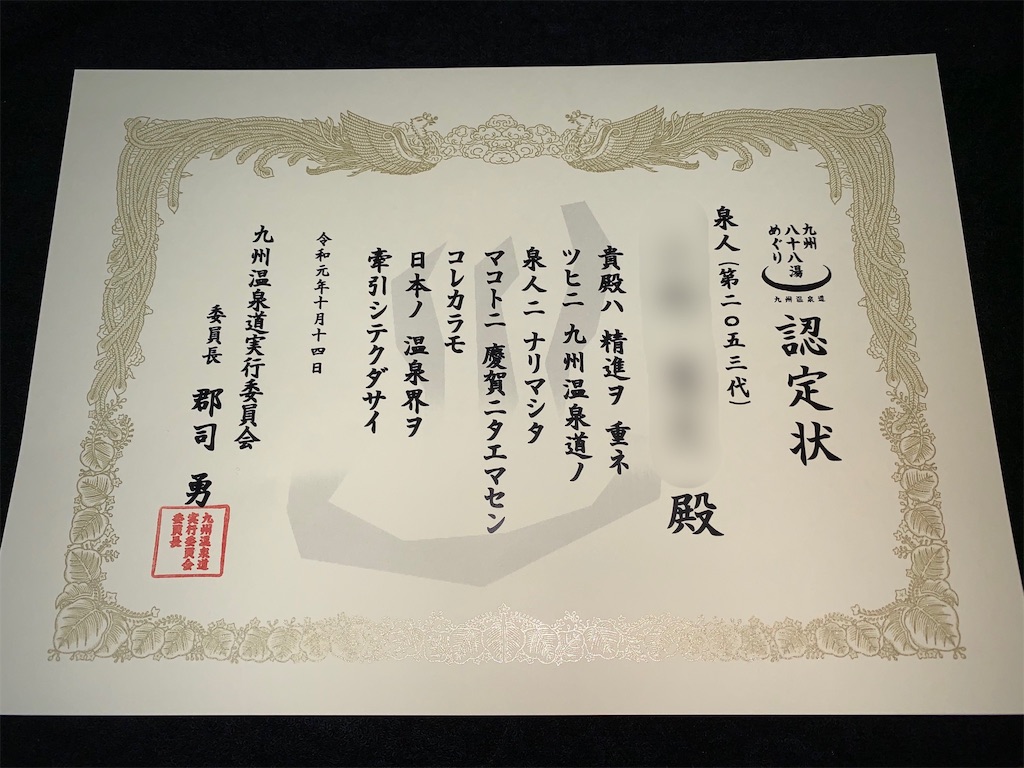 九州
八十八湯
めぐり
九州温泉道
認定状
泉人(第二〇五三代)
殿
貴殿ハ 精進ヲ 重ネ
ツヒニ 九州温泉道ノ
泉人ニ ナリマシタ
マコトニ 慶賀ニタエマセン
コレカラモ
日本ノ 温泉界ヲ
牽引シテクダサイ
令和元年十月十四日
九州温泉道実行委員会
委員長 郡司 勇
九州温泉道
実行委員会
委員長